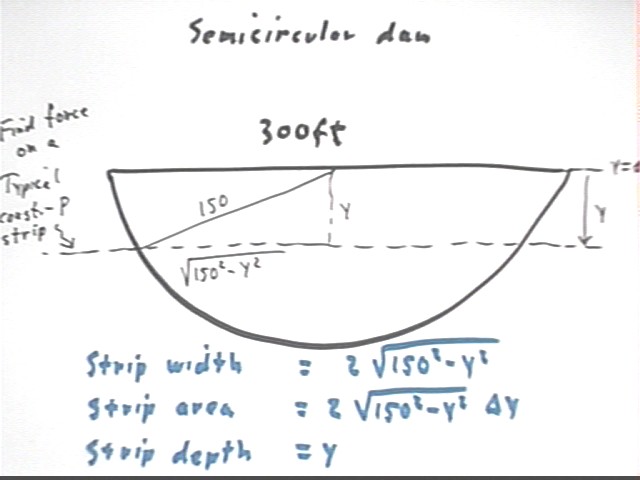 Semicircular dam
Find force
on a
Typical
const-P
strip
300ft
Y=0
150
Y
Y
√150²-Y²
Strip width = 2 √150²-Y²
Strip area = 2 √150²-Y² ΔY
Strip depth = Y